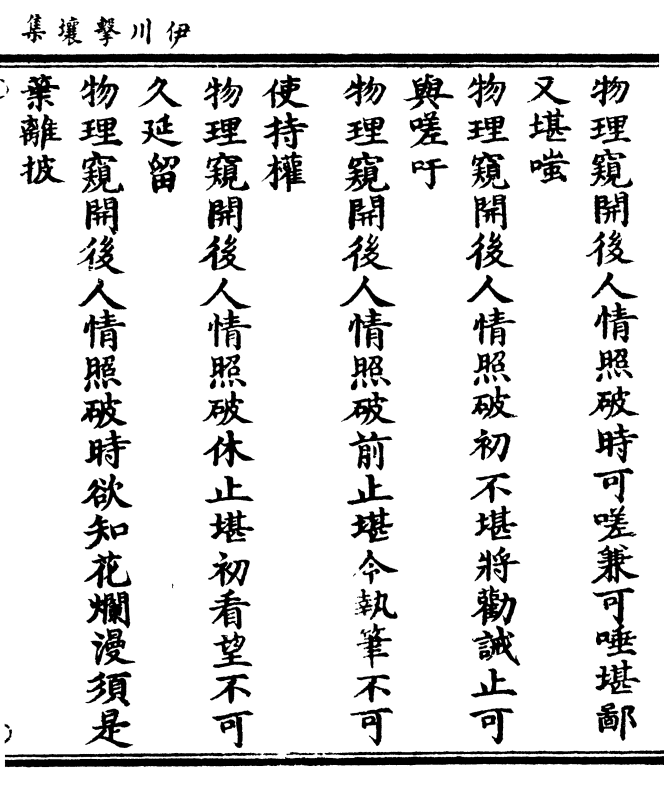 伊川擊壤集
物理窺開後人情照破時可嗟兼可唾堪鄙
又堪嗤
物理窺開後人情照破初不堪將勸誡止可
與嗟吁
物理窺開後人情照破前止堪令執筆不可
使持權
物理窺開後人情照破休止堪初看望不可
久延留
物理窺開後人情照破時欲知花爛漫須是
葉離披